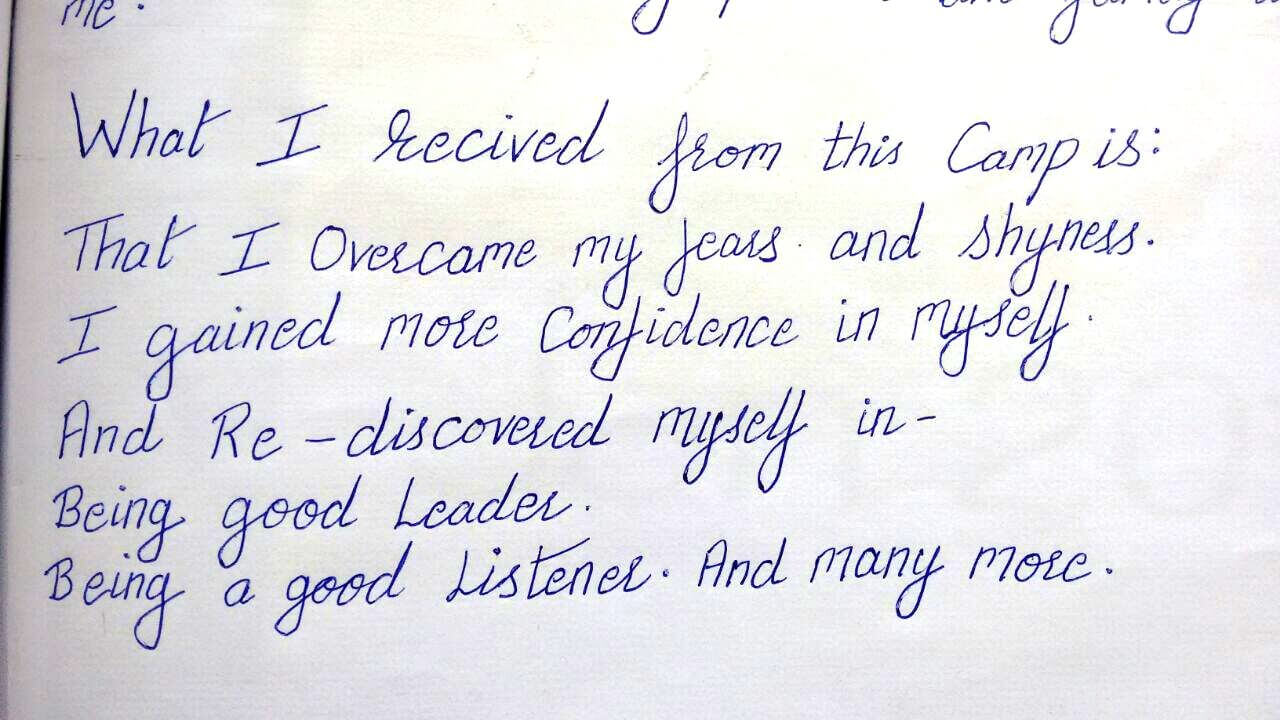 me.
What I recived from this Camp is:
That I Overcame my fears and shyness.
I gained more Confidence in myself.
And Re-discovered myself in-
Being good Leader.
Being a good Listener. And many more.